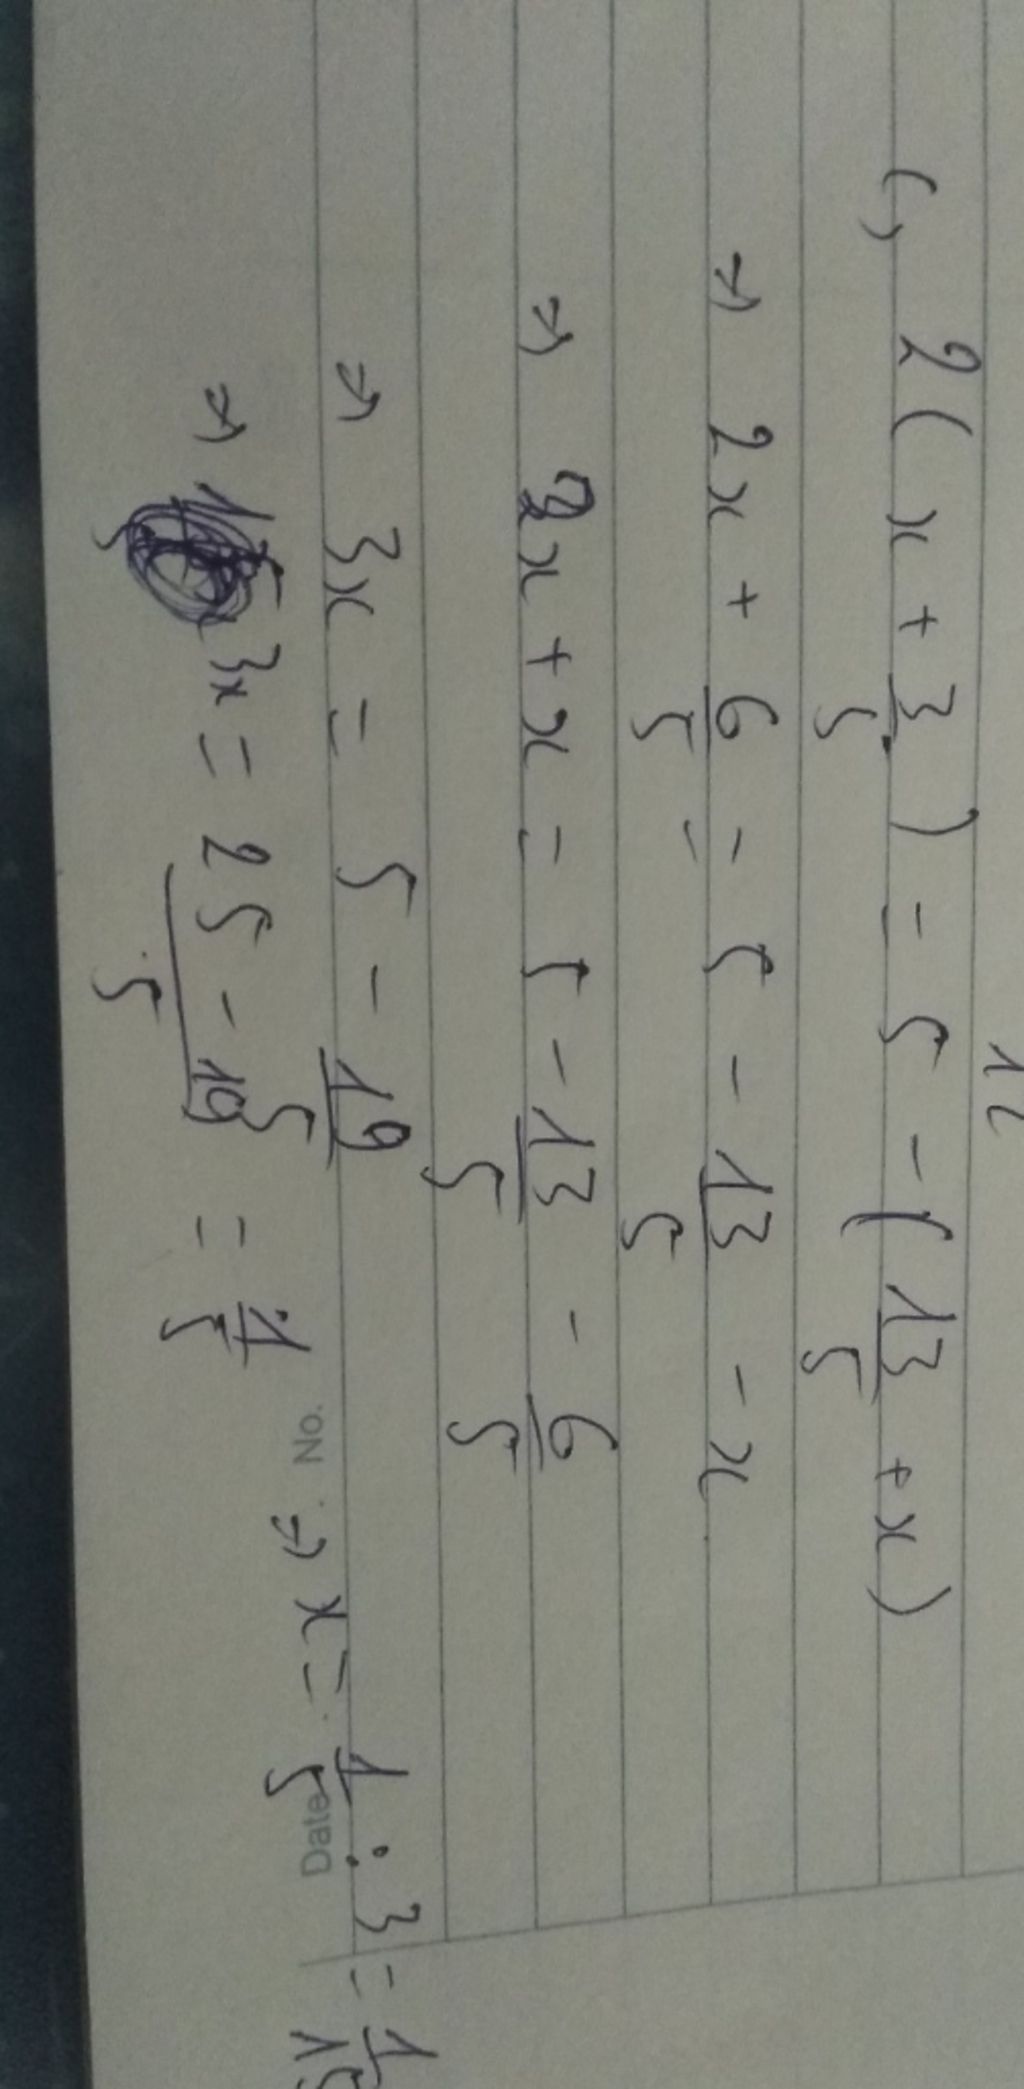 12
c, 2(x + 3/5) = 5 - (13/5 + x)
=> 2x + 6/5 = 5 - 13/5 - x
=> 2x + x = 5 - 13/5 - 6/5
=> 3x = 5 - 19/5
=> 3x = 25 - 19/5 = 1/5 => x = 1/5 : 3 = 1/15
No.
Date